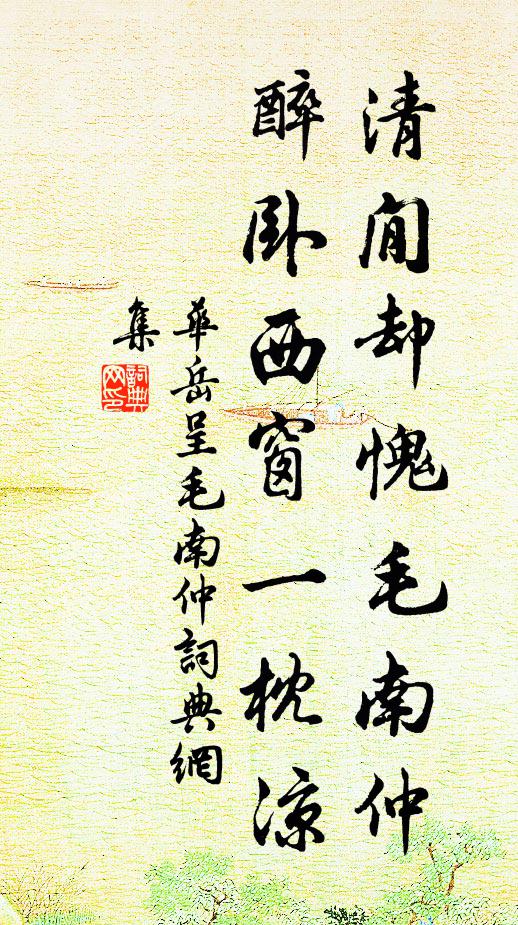 清閒却愧毛南仲
醉卧西窗一枕涼
華岳呈毛南仲詞典網
集
詞典
网印